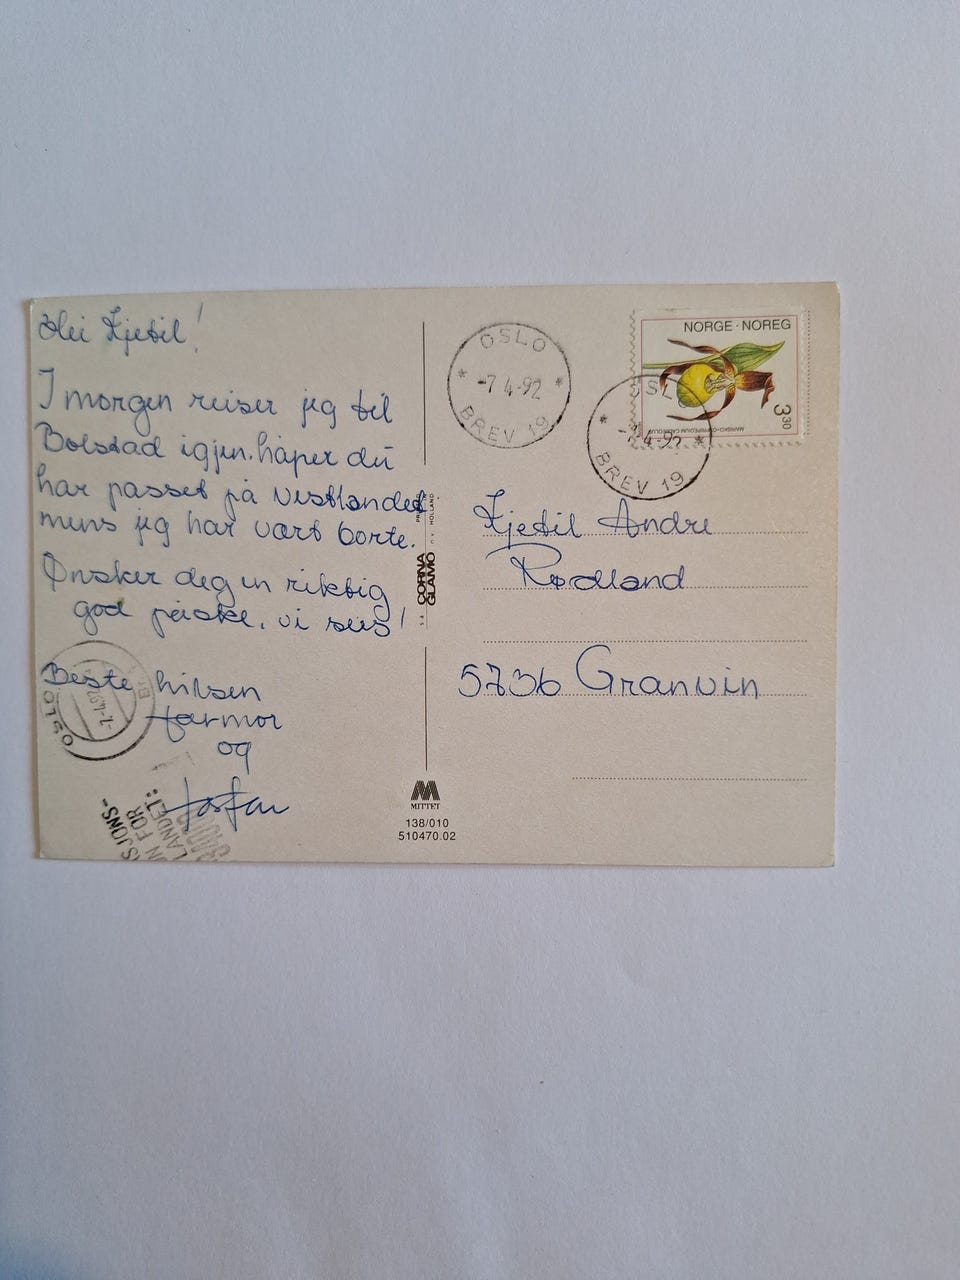 Hei Kjetil!
I morgen reiser jeg til
Bolstad igjen. håper du
har passet på vestlandet
mens jeg har vært borte.
Ønsker deg en riktig
god påske, vi sees!
Beste hilsen
farmor
og
farfar
OSLO
-7.4-92
BREV 19
NORGE · NOREG
3.30
OSLO
4-92
BREV 19
Kjetil Andre
Rødland
5736 Granvin
CORNA
GLAMO
n.v. HOLLAND
MITTET
138/010
510470.02
OSLO
SJONS-
N FOR
LANDET: